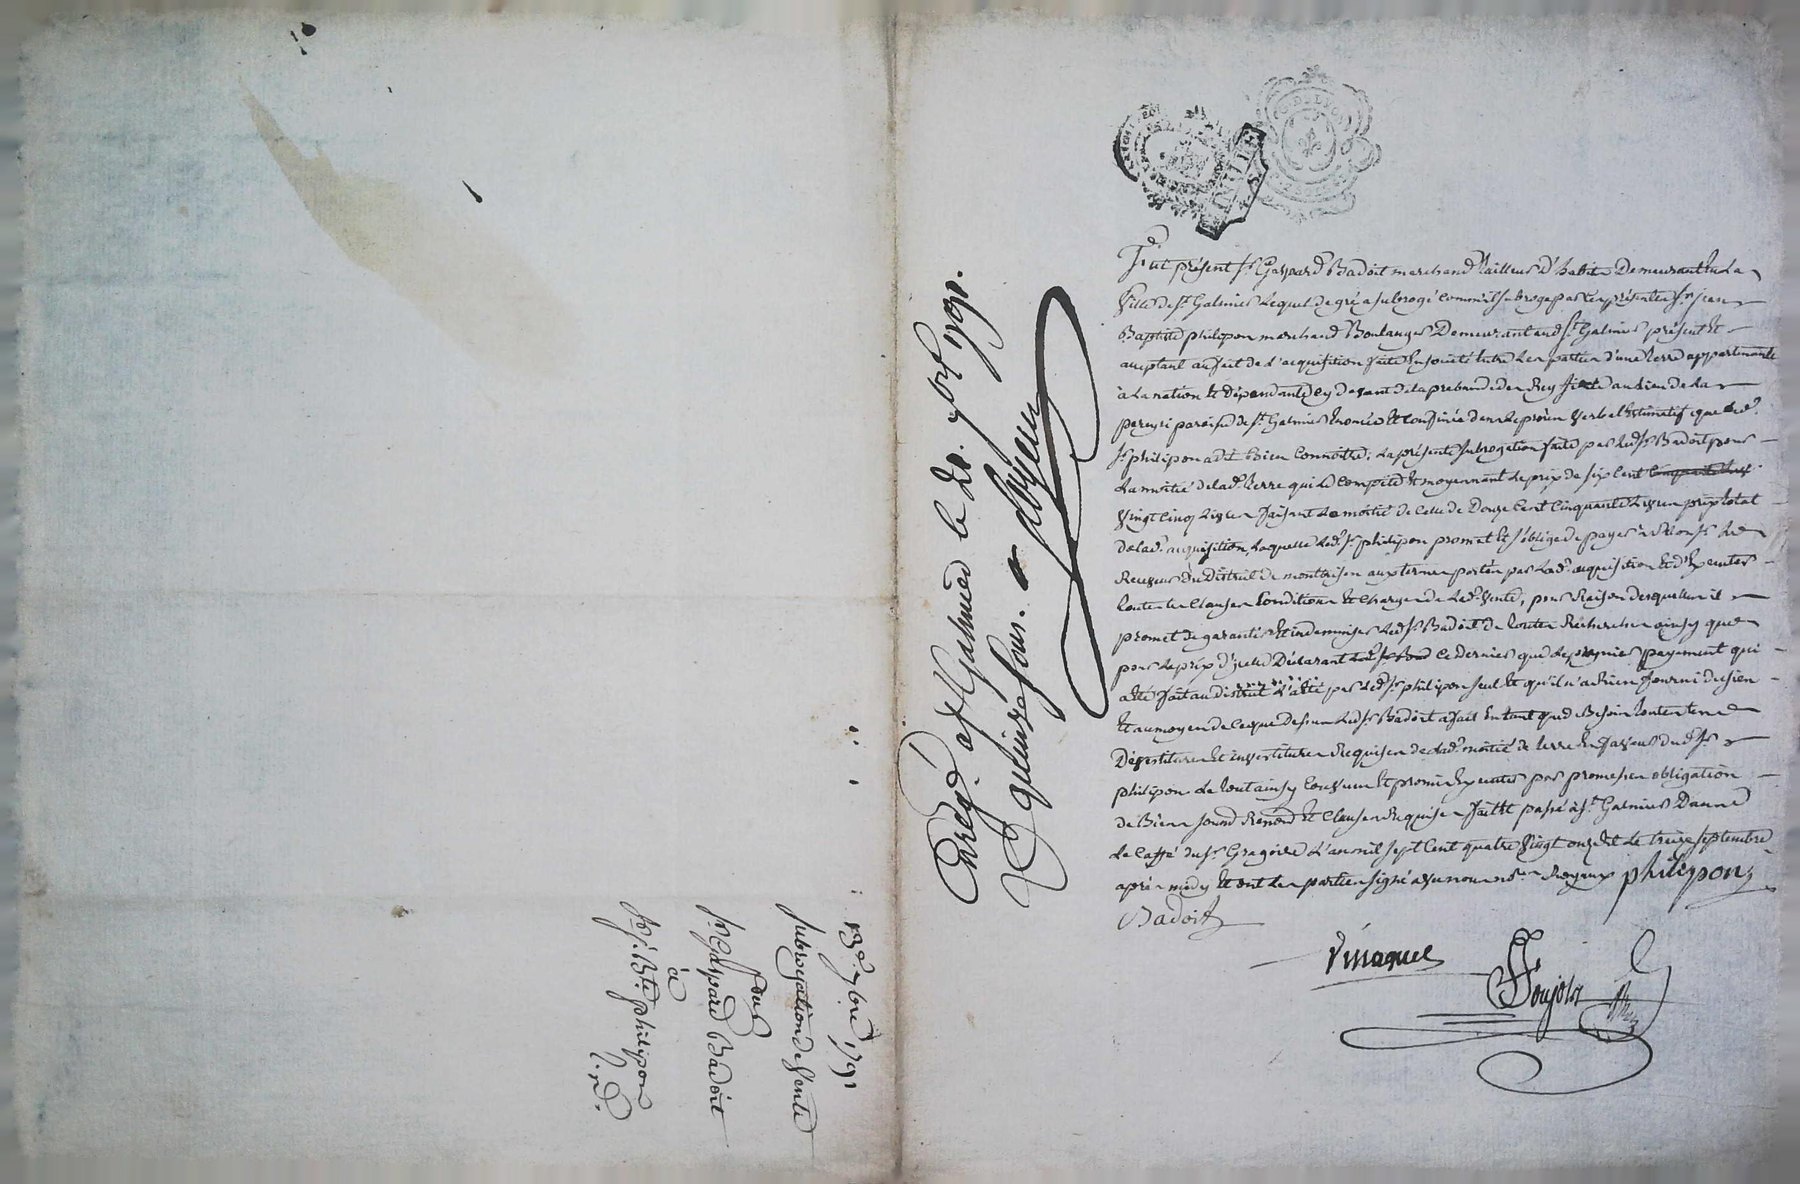 13e 7bre 1791
subrogation de vente
du
sr Gaspard Badoit
à
sr j. Bte philipon
Enregé. a St Galmier le 20. 7bre 1791.
quinze sous.
G. DE LYON
Fut présent sr. Gaspard Badoit marchand Tailleur d'habits Demeurant En La
Ville de st. Galmier Lequel de gré a subrogé comme il subroge par ces présentes sr. jean
Baptiste philipon marchand Boulanger Demeurant aud. st. Galmier présent Et
acceptant au fait de l'acquisition faite En société Entre Les parties d'une terre appartenante
à La nation Et dépendante cy devant de la prebande des Roy située au Lieu de La
paroisse de st. Galmier Enoncée Et confinée dans Le procès verbal Estimatif que Led.
sr. philipon a dit bien connoitre; La présente subrogation faite par Led. sr. Badoit pour
La moitié de lad. terre qui Le compète Et moyennant Le prix de six cent cinquante Livres
Vingt cinq Livres faisant La moitié de celle de Douze cent cinquante Livres prix total
de lad. acquisition, Laquelle Led. sr. philipon promet Et s'oblige de payer à Monsr. Le
Receveur du District de montbrison aux termes portés par Lad. acquisition Et d'Executer
toutes les clauses conditions Et charges de Lad. vente, pour Raison desquelles il
promet de garantir Et indemniser Led. sr. Badoit de toutes Recherches ainsy que
pour Le prix d'icelle Déclarant ce dernier que Le premier payement qui
a été fait au district L'a été par Led. sr. philipon seul Et qu'il n'a Rien fourni du sien
Et au moyen de ce que Dessus Led. sr. Badoit a fait En tant que de Besoin toutes
Dévestitures Et investitures Requises de Lad. moitié de terre En faveur dud. sr.
philipon. Le tout ainsy convenu Et promis Executer par promesses obligation
de Biens soumd. Renond. Et clauses Requises fait Et passé à st. Galmier Dans
Le caffé du sr. Gragoire L'an mil sept cent quatre vingt onze Et Le treize septembre
après midy Et ont Les parties signé avec nous nores. Royaux philipon
Badoit
Vinaquer
Poujols